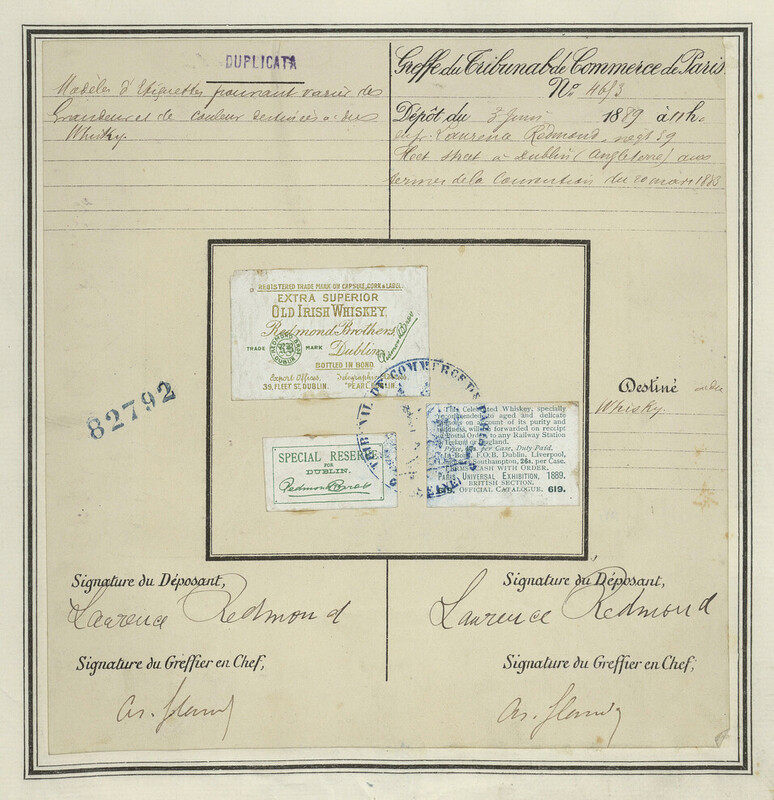 DUPLICATA
Modèles d'Etiquettes pouvant varier de
Grandeur et de couleur destinées à du
Whisky.
Greffe du Tribunal de Commerce de Paris
No.
Dépôt du 3 Juin 1889 à 11 h.
Laurence Redmond, negt 39
Fleet street à Dublin (Angleterre) aux
termes de la Convention du 20 mars 1883
REGISTERED TRADE MARK ON CAPSULE, CORK & LABEL.
EXTRA SUPERIOR
OLD IRISH WHISKEY
Redmond Brothers
TRADE MARK Dublin
REDMOND BROS
DUBLIN
Redmond Bros
BOTTLED IN BOND.
Export Offices, Telegraphic
39, FLEET ST. DUBLIN. "PEARL, DUBLIN
82792
TRIBUNAL DE COMMERCE DE PARIS
SEINE
SPECIAL RESERVE
FOR
DUBLIN.
Redmond Bros
This Celebrated Whiskey, specially
recommended to aged and delicate
persons on account of its purity and
mildness, will be forwarded on receipt
of Postal Order to any Railway Station
in Ireland or England.
Price, per Case, Duty Paid.
In Bond, F.O.B. Dublin, Liverpool,
Southampton, 26s. per Case.
TERMS CASH WITH ORDER.
PARIS UNIVERSAL EXHIBITION, 1889.
BRITISH SECTION.
619. OFFICIAL CATALOGUE. 619.
Destiné
Whisky.
Signature du Déposant,
Laurence Redmond
Signature du Greffier en Chef,
Signature du Déposant,
Laurence Redmond
Signature du Greffier en Chef,